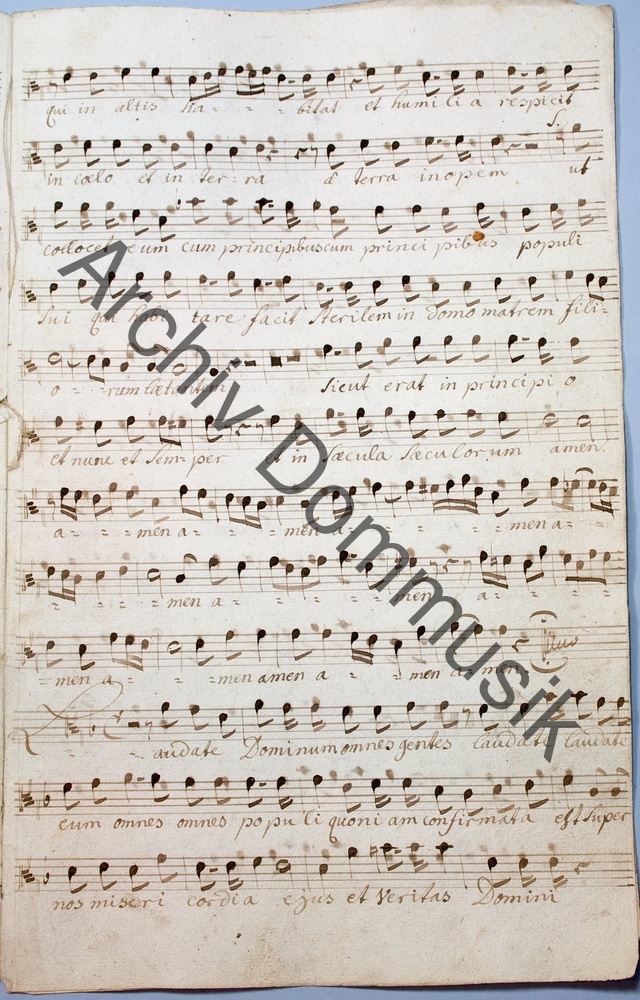 qui in altis ha - - - bitat et humilia respicit
S.
in cœlo et in ter - - ra a terra inopem ut
collocet eum cum principibus cum principibus populi
Sui qui habi tare facit Sterilem in domo matrem fili -
o - - rum lætantem Sicut erat in principi o
et nunc et Sem - per et in Sæcula Sæculorum amen.
a - - men a - - - men a - - - - men a -
- - - - men a - - - - men a - -
men a - - men amen a - - men a - men
Laudate Dominum omnes gentes laudate laudate
eum omnes omnes populi quoniam confirmata est Super
nos miseri cordia ejus et Veritas Domini
Archiv Dommusik